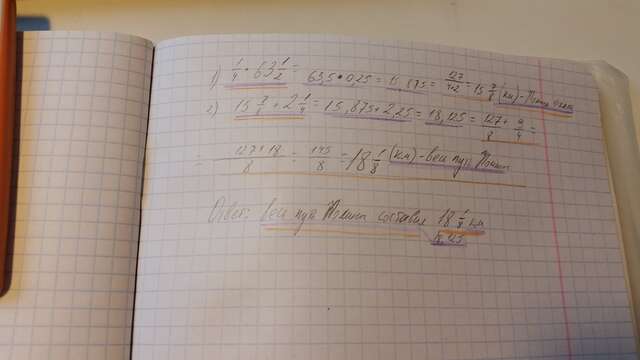 1) 1/4 · 63 1/2 = 63,5 · 0,25 = 15,875 = 127/4·2 = 15 7/8 (км) -
2) 15 7/8 + 2 1/4 = 15,875 + 2,25 = 18,125 = 127/8 + 9/4 =
= 127+18/8 = 145/8 = 18 1/8 (км) - весь путь
Ответ: весь путь составил 18 1/8 км
18,125